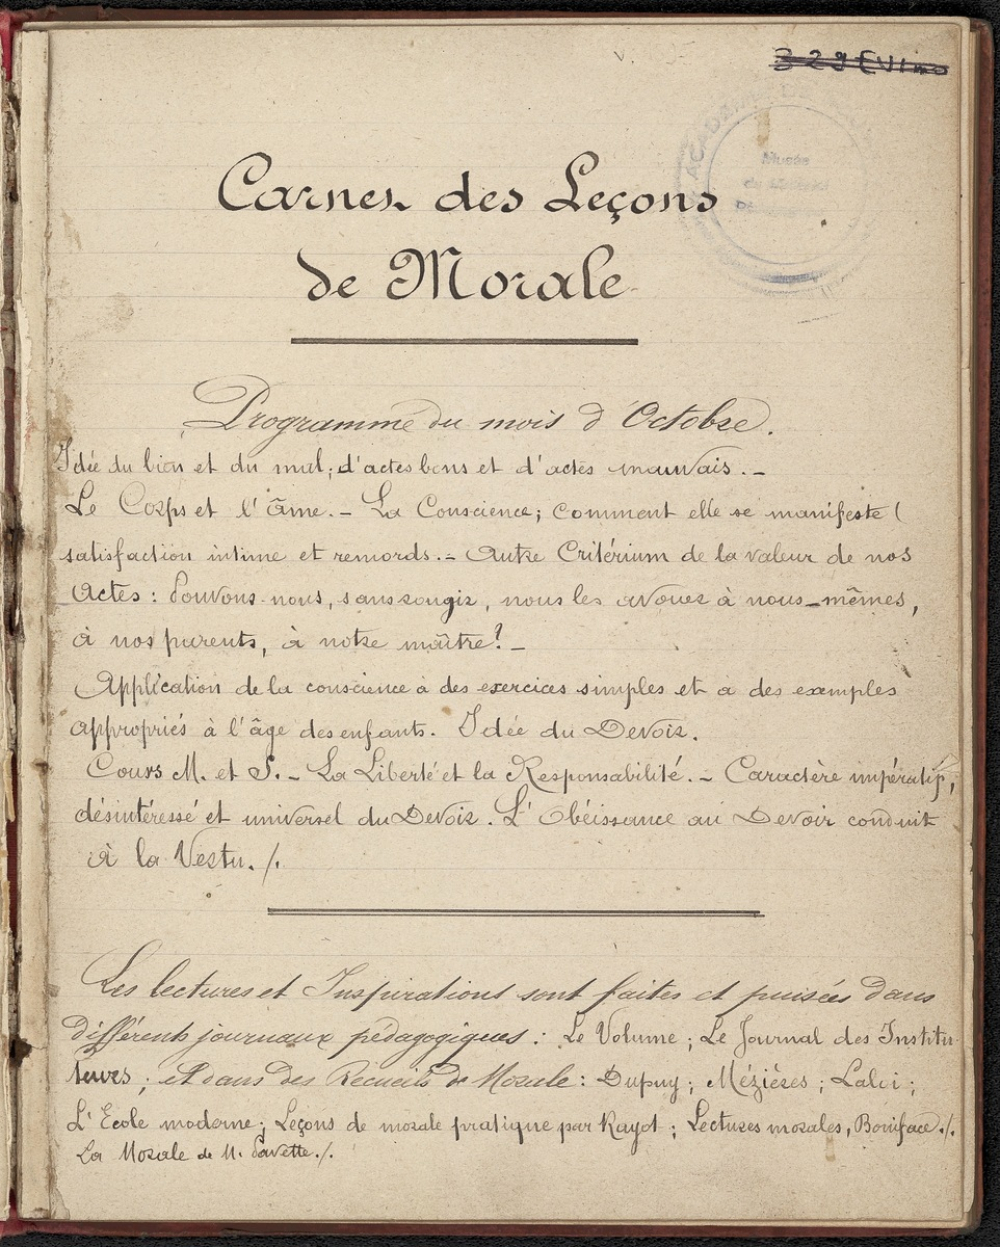 Carnet des Leçons
de Morale
Programme du mois d'Octobre.
Idée du bien et du mal; d'actes bons et d'actes mauvais. -
Le Corps et l'âme. - La Conscience; comment elle se manifeste (
satisfaction intime et remords. - Autre Critérium de la valeur de nos
Actes: Pouvons-nous, sans rougir, nous les avouer à nous-mêmes,
à nos parents, à notre maître? -
Application de la conscience à des exercices simples et à des exemples
appropriés à l'âge des enfants. Idée du Devoir.
Cours M. et S. - La Liberté et la Responsabilité. - Caractère impératif,
désintéressé et universel du Devoir. L'Obéissance au Devoir conduit
à la Vertu. /.
Les lectures et Inspirations sont faites et puisées dans
différents journaux pédagogiques: Le Volume; Le Journal des Institu-
teurs; et dans des Recueils de Morale: Dupuy; Mézières; Laloi;
L'Ecole moderne; Leçons de morale pratique par Rayot; Lectures morales, Boniface. /.
La Morale de M. /.
Musée